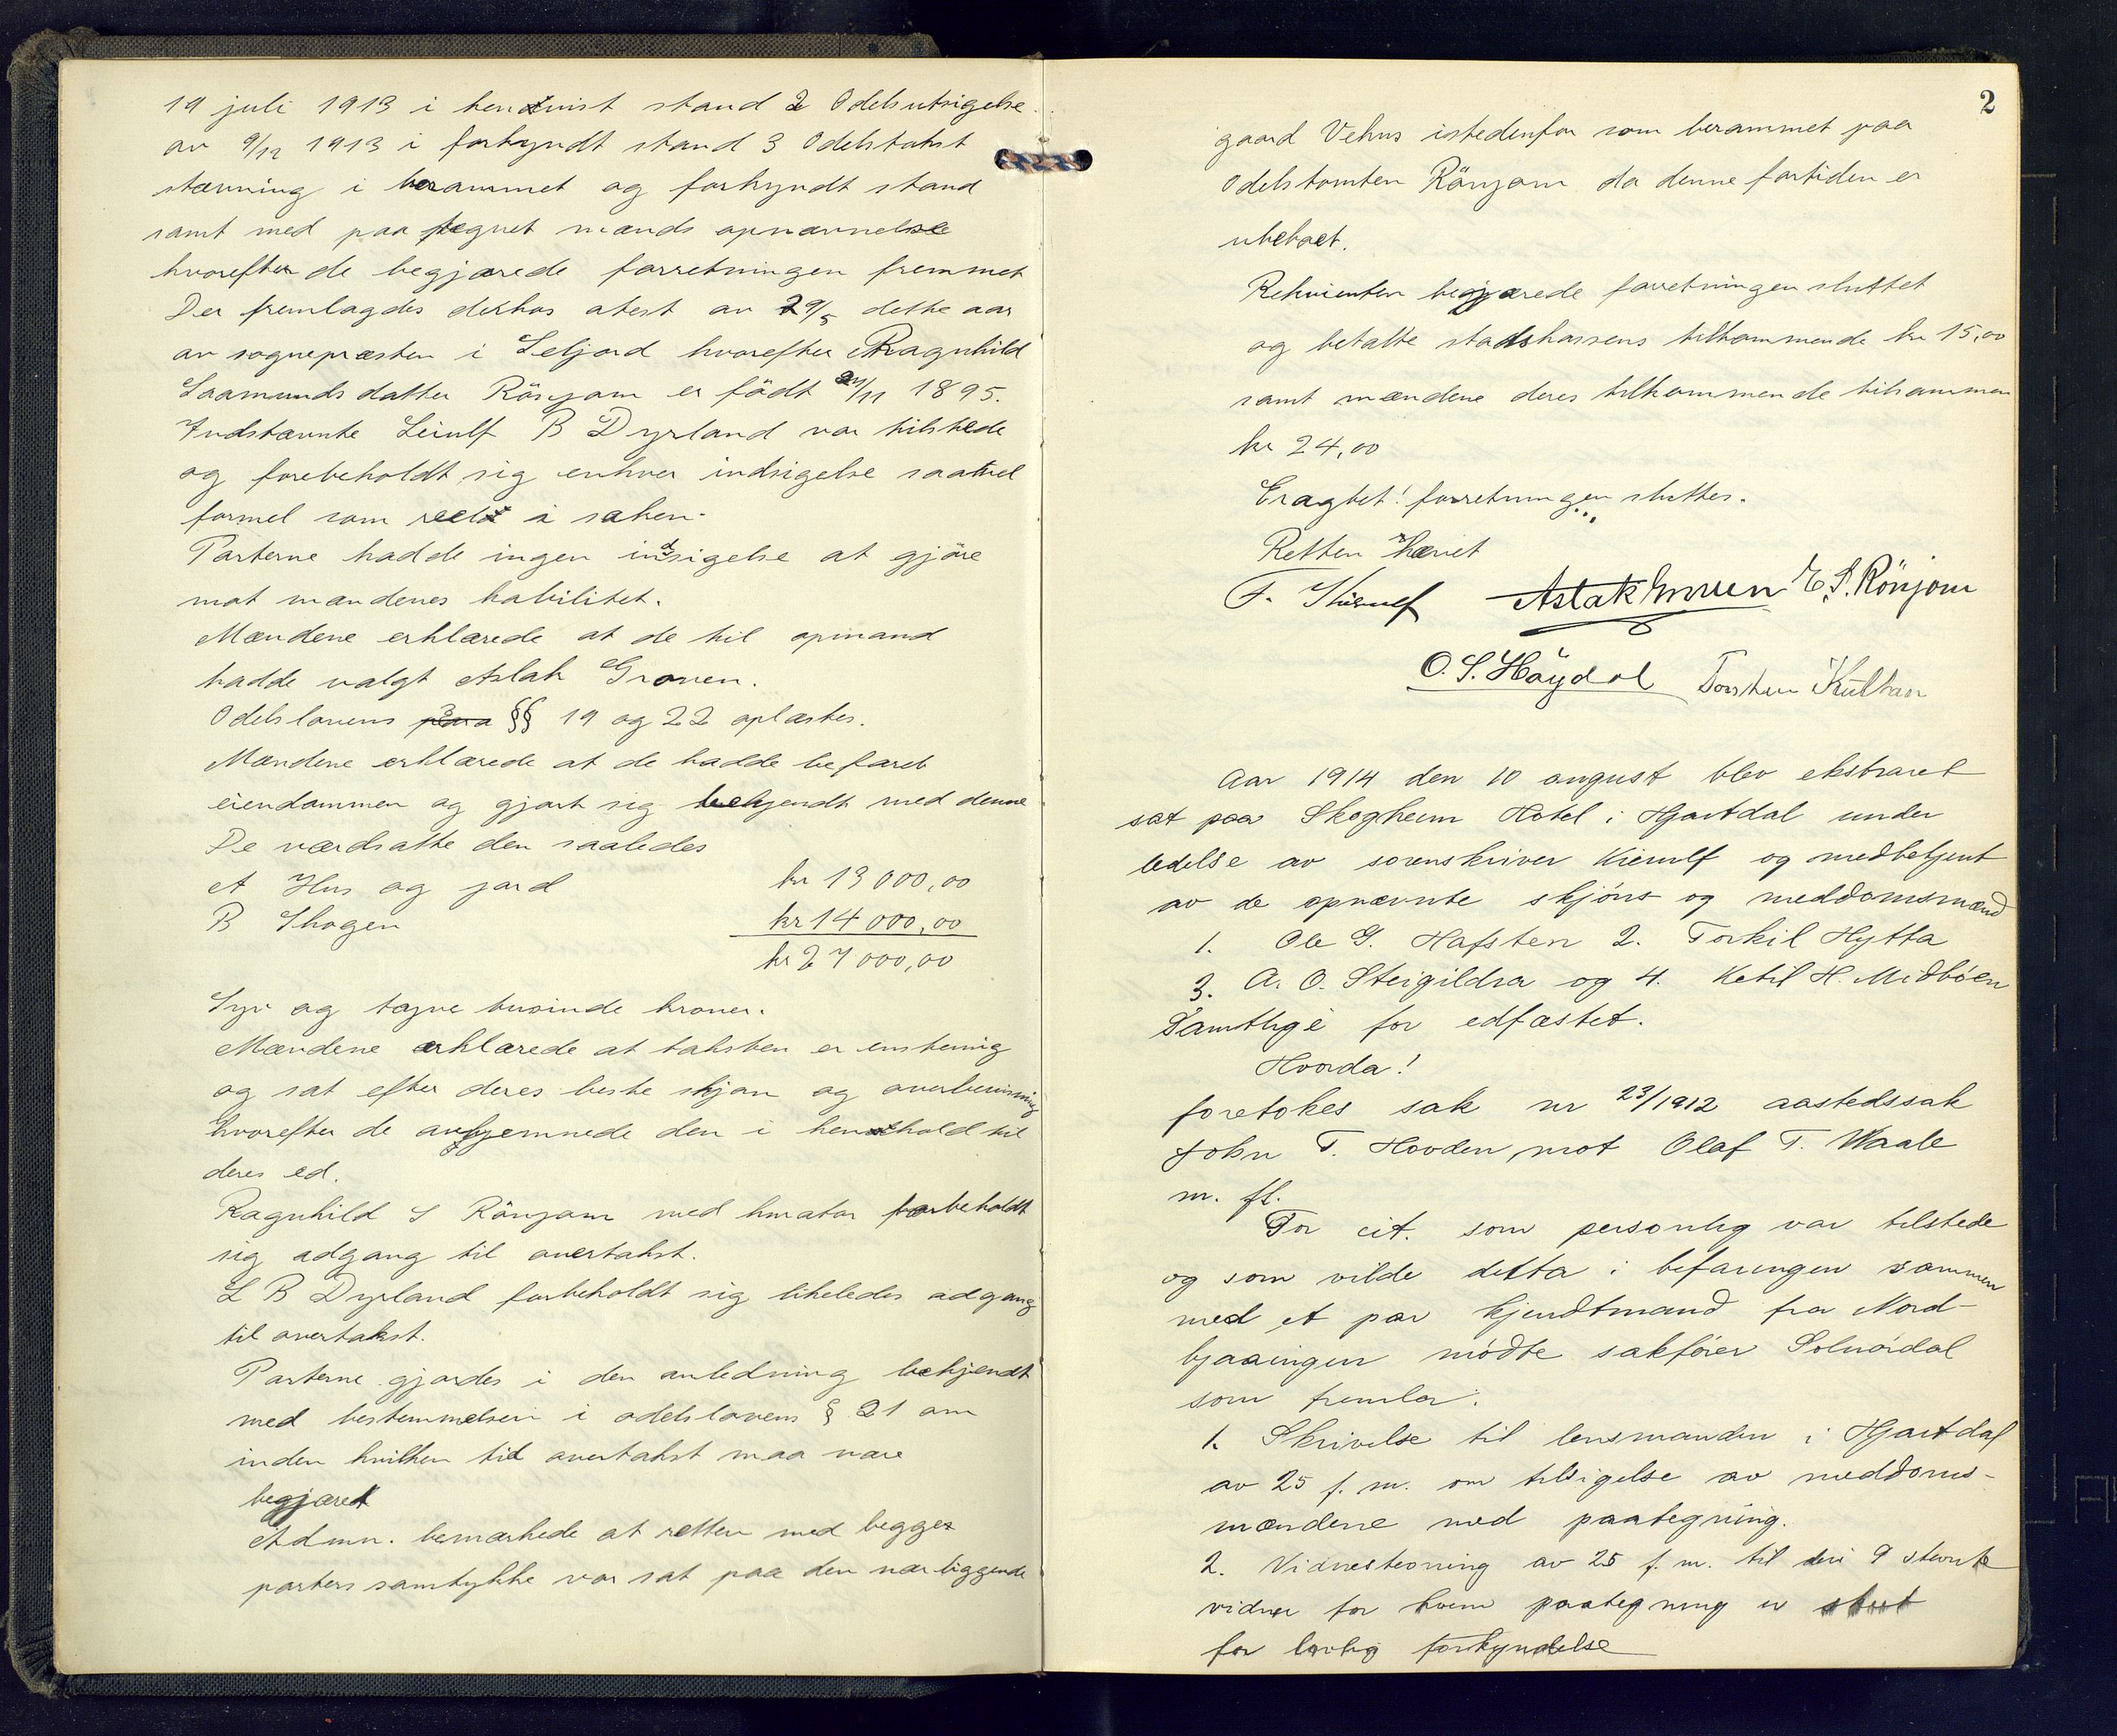 19 juli 1913 i henvist stand 2 Odelsutsigelse
av 9/12 1913 i forkyndt stand 3 Odelstakst
stævning i berammet og forkyndt stand
samt med paategnet mænds opnævnelse
hvorefter de begjærede forretningen fremmet
Der fremlagdes derhos atest av 29/5 dette aar
av sognepræsten i Seljord hvorefter Ragnhild
Saamundsdatter Rönjom er födt /11 1895.
Indstævnte Leiulf B Dyrland var tilstede
og forebeholdt sig enhver indsigelse saavel
formel som reel i saken.
Parterne hadde ingen indsigelse at gjöre
mot mændenes habilitet.
Mændene erklærede at de til opmand
hadde valgt Aslak Groven.
Odelslovens §§ 19 og 22 oplæstes.
Mændene erklærede at de hadde befaret
eiendommen og gjort sig bekjendt med denne
De værdsatte den saaledes
A Hus og jord kr 13 000,00
B Skogen kr 14 000,00
kr 27 000,00
Syv og tyve tusinde kroner.
Mændene erklærede at taksten er enstemig
og sat efter deres beste skjön og overbevisning
hvorefter de avhjemnede den i henhold til
deres ed.
Ragnhild S Rönjom med kurator forbeholdt
sig adgang til overtakst.
L B Dyrland forbeholdt sig likeledes adgang
til overtakst.
Parterne gjordes i den anledning bekjendt
med bestemmelsen i odelslovens § 21 om
inden hvilken tid overtakst maa være
begjæret
Adm. bemærkede at retten med begges
parters samtykke var sat paa den nærliggende
2
gaard Vehus istedenfor som berammet paa
Odelstomten Rönjom da denne fortiden er
ubeboet.
Rekvirenten begjærede forretningen sluttet
og betalte statskassens tilkommende kr 15,00
samt mændene deres tilkommende tilsammen
kr 24,00
Eragtet! forretningen sluttes.
Retten hævet
F. Kierulf Aslak Groven E. S. Rönjom
O. S. Höydal Torsten
Aar 1914 den 10 august blev ekstraret
sat paa Skogheim Hotel i Hjartdal under
ledelse av sorenskriver Kierulf og medbetjent
av de opnævnte skjöns og meddomsmænd
1. Ole G. Hafsten 2. Torkil Hytta
3. A. O. Steigildra og 4. Ketil H. Midböen
Samtlige for edfæstet.
Hvorda!
foretokes sak nr 23/1912 aastedssak
John T. Hovden mot Olaf T. Waale
m. fl.
For cit. som personlig var tilstede
og som vilde delta i befaringen sammen
med et par kjendtmænd fra Nord-
bjaaingen mödte sakförer Solnördal
som fremla:
1. Skrivelse til lensmanden i Hjartdal
av 25 f. m. om tilsigelse av meddoms-
mændene med paategning.
2. Vidnestevning av 25 f. m. til de 9 stevnte
vidner for hvem paategning er
for lovlig forkyndelse